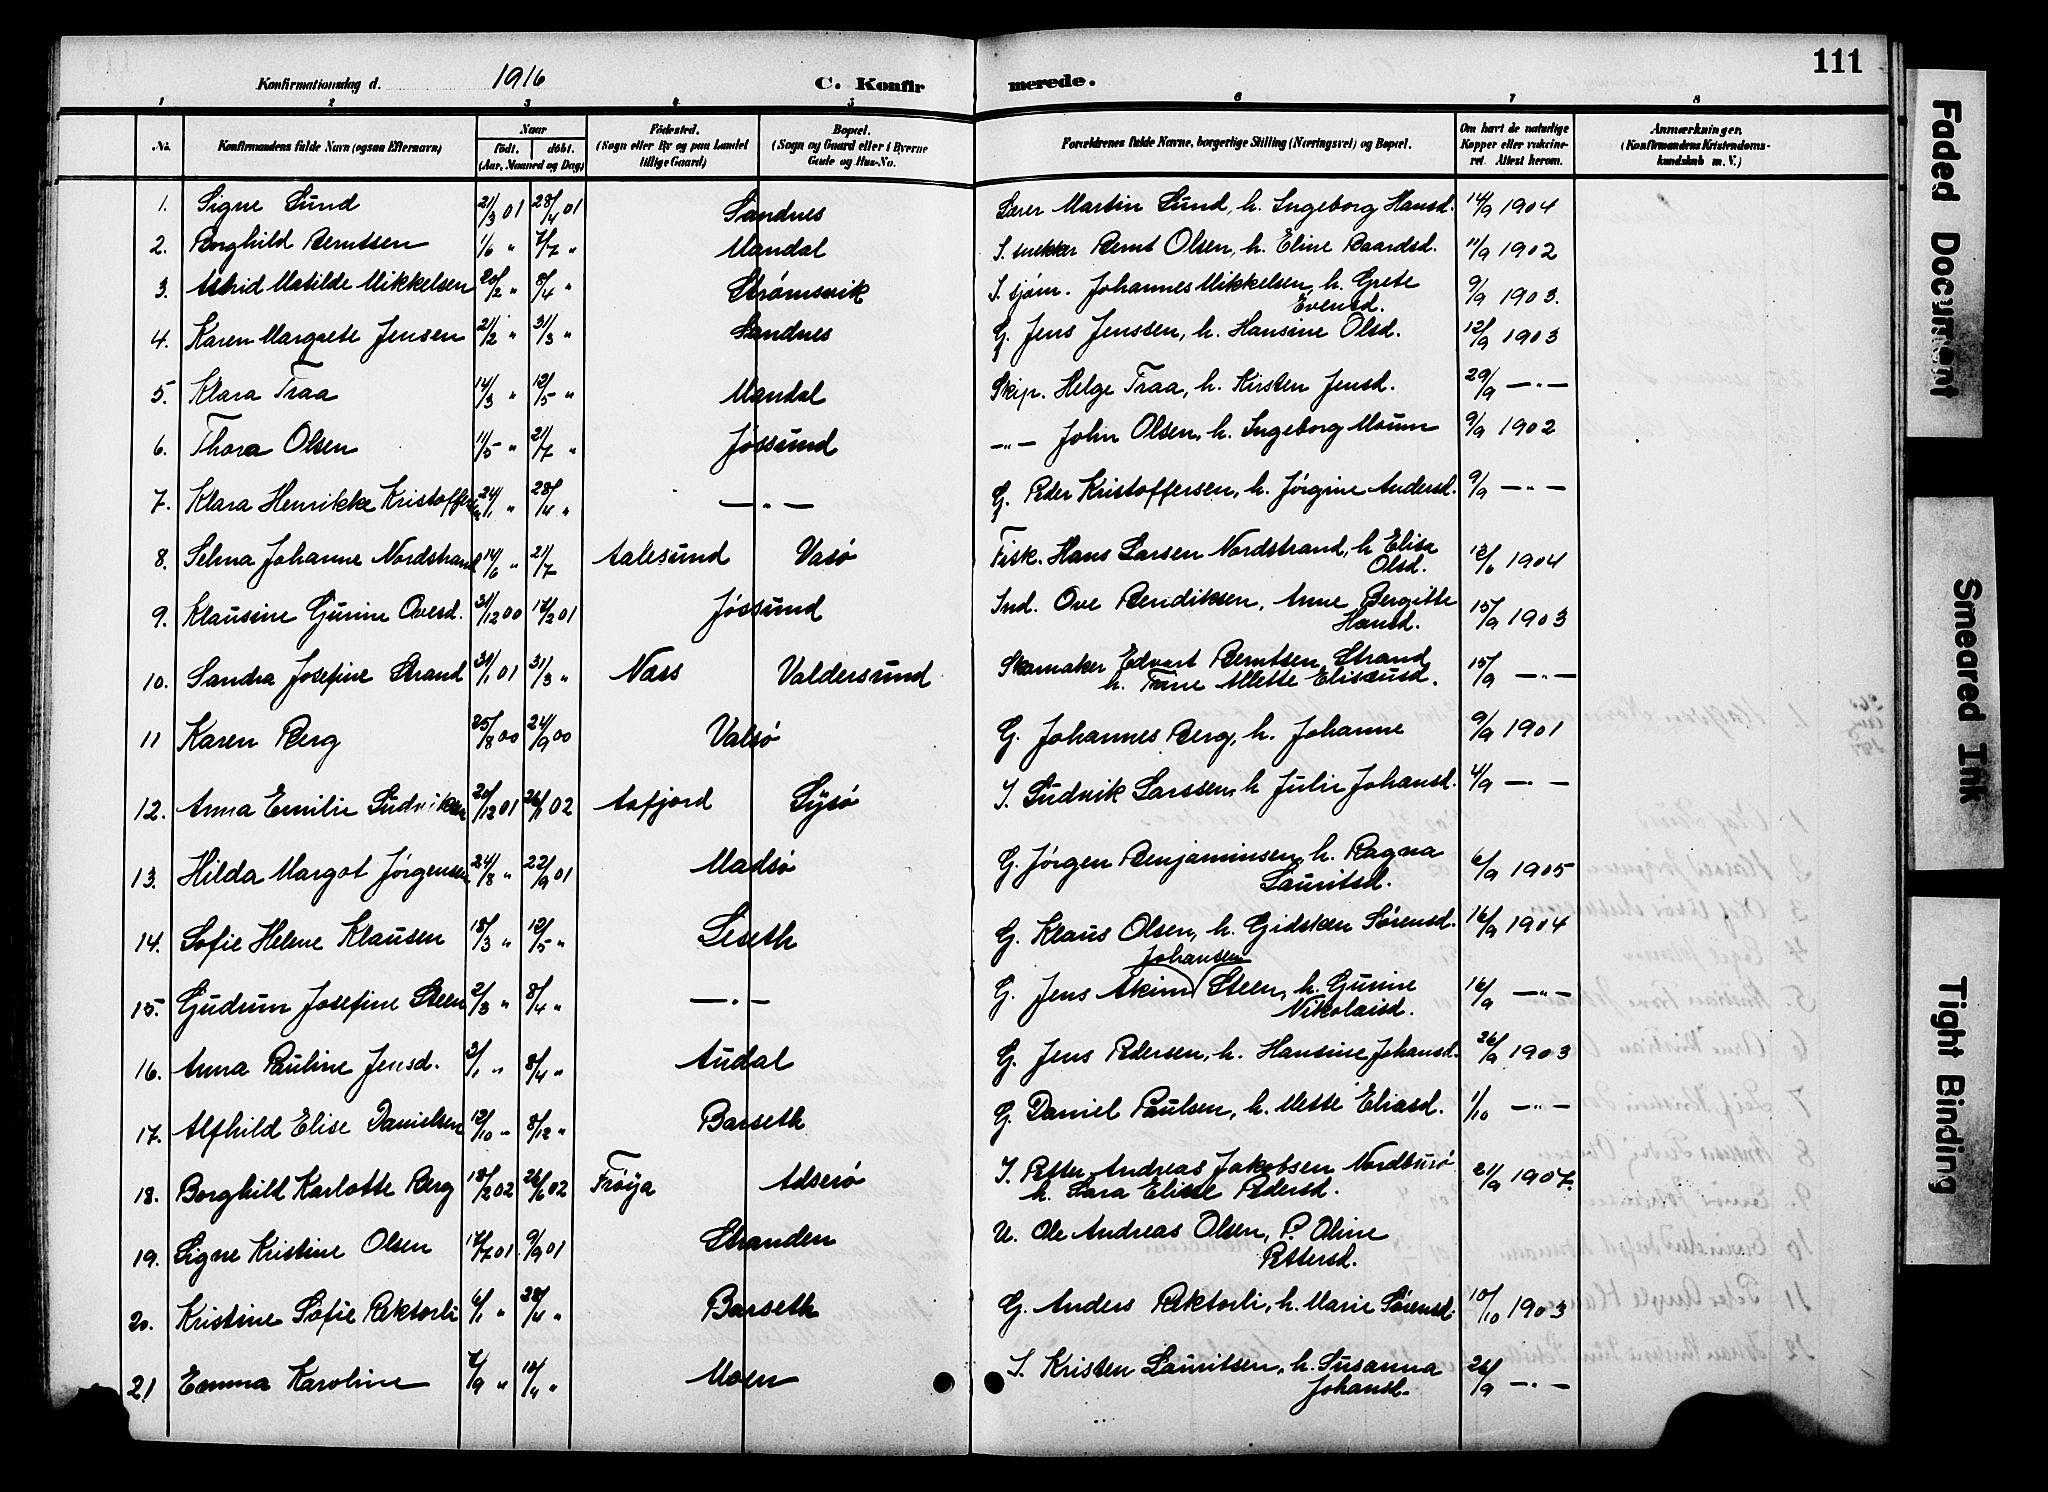 111
Konfirmationsdag d. 1916 C. Konfirmerede.
1 2 3 4 5 6 7 8
No. Konfirmandens fulde Navn (ogsaa Efternavn) Naar født. døbt. (Aar, Maaned og Dag) Fødested. (Sogn eller By og paa Landet tillige Gaard) Bopæl. (Sogn og Gaard eller i Byerne Gade og Hus-No. Forældrenes fulde Navne, borgerlige Stilling (Næringsvei) og Bopæl. Om havt de naturlige Kopper eller vaccineret. Attest herom. Anmærkninger. (Konfirmandens Kristendomskundskab m. V.)
1. Signe Lund 21/3 01 28/4 01 Sandnes Lærer Martin Lund, h. Ingeborg Hansd. 14/9 1904
2. Borghild Berntsen 1/6 " 7/7 " Mandal S. snekker Bernt Olsen, h. Eline Baardsd. 11/9 1902
3. Astrid Matilde Mikkelsen 20/2 " 8/4 " Strømsvik S. sjøm. Johannes Mikkelsen, h. Grete Evensd. 9/9 1903.
4. Karen Margrete Jensen 21/2 " 31/3 " Sandnes G. Jens Jenssen, h. Hansine Olsd. 12/9 1903
5. Klara Traa 14/3 " 12/5 " Mandal Skip. Helge Traa, h. Kirsten Jensd. 29/9 — " —
6. Thora Olsen 11/5 " 21/7 " Jøssund — " — John Olsen, h. Ingeborg Moum 9/9 1902
7. Klara Henrikke Kristoffersen 24/1 " 28/4 " — " — G. Peder Kristoffersen, h. Jørgine Andersd. 9/9 — " —
8. Selma Johanne Nordstrand 14/6 " 21/7 Aalesund Vasø Fisk. Hans Larsen Nordstrand, h Elisa Olsd. 12/6 1904
9. Klausine Gurine Ovesd. 31/12 00 17/2 01 Jøssund Ind. Ove Bendiksen, Anne Bergitte Hansd. 15/9 1903
10. Sandra Josefine Strand 31/1 01 31/3 " Næss Valdersund Skomaker Edvart Berntsen Strand h. Trine Allette Elisæusd. 15/9 — " —
11 Karen Berg 25/8 00 24/9 00 Valsø G. Johannes Berg, h. Johanne 9/9 1901
12. Anna Emilie Ludviksen 20/12 01 26/1 02 Aafjord Lysø I. Ludvik Larssen, h Julie Johansd. 4/9 — " —
13. Hilda Margot Jørgensen 24/8 " 22/9 01 Madsø G. Jørgen Benjaminsen, h. Ragna Lauritsd. 6/9 1905
14. Sofie Helene Klausen 18/3 " 12/5 " Leseth G. Klaus Olsen, h. Gidsken Sørensd. 16/9 1904
15. Gudrun Josefine Steen 2/3 " 8/4 " — " — G. Jens Akim Johansen Steen, h. Gurine Nikolaisd. 16/9 — " —
16. Anna Pauline Jensd. 3/1 " 8/4 " Audal G. Jens Pedersen, h. Hansine Johansd. 26/9 1903
17. Alfhild Elise Danielsen 12/10 " 8/12 " Barseth G. Daniel Paulsen, h. Mette Eliasd. 1/10 — " —
18. Borghild Karlotte Berg 18/2 02 26/6 02 Frøya Adserø I. Petter Andreas Jakobsen Nordbusø h. Sara Elise Pedersd. 21/9 1907.
19. Signe Kristine Olsen 17/7 01 9/9 01 Stranden U. Ole Andreas Olsen, P. Oline Pettersd.
20. Kristine Sofie Rektorli 6/1 " 28/4 " Barseth G. Anders Rektorli, h. Marie Sørensd. 10/10 1903
21 Emma Karoline 7/9 " 10/11 " Moen I. Kristen Lauritsen, h. Susanna Johansd. 26/9 — " —
Faded Document
Smeared Ink
Tight Binding